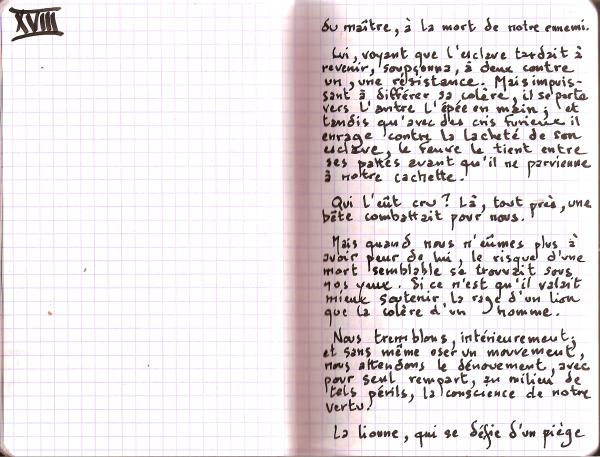 XVIII
du maître, à la mort de notre ennemi.
Lui, voyant que l'esclave tardait à
revenir, soupçonna, à deux contre
un, une résistance. Mais impuis-
sant à différer sa colère, il se porte
vers l'antre l'épée en main ; et
tandis qu'avec des cris furieux il
enrage contre la lacheté de son
esclave, le fauve le tient entre
ses pattes avant qu'il ne parvienne
à notre cachette.
Qui l'eût cru ? Là, tout près, une
bête combattait pour nous.
Mais quand nous n'eûmes plus à
avoir peur de lui, le risque d'une
mort semblable se trouvait sous
nos yeux. Si ce n'est qu'il valait
mieux soutenir la rage d'un lion
que la colère d'un homme.
Nous tremblons, intérieurement,
et sans même oser un mouvement,
nous attendons le dénouement, avec
pour seul rempart, au milieu de
tels périls, la conscience de notre
vertu.
La lionne, qui se défie d'un piège